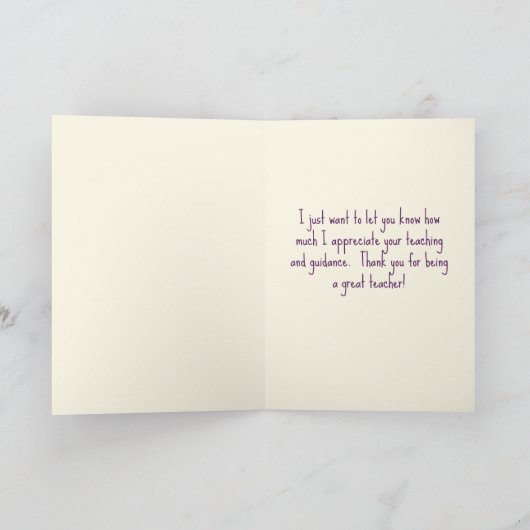 I just want to let you know how
much I appreciate your teaching
and guidance.  Thank you for being
a great teacher!